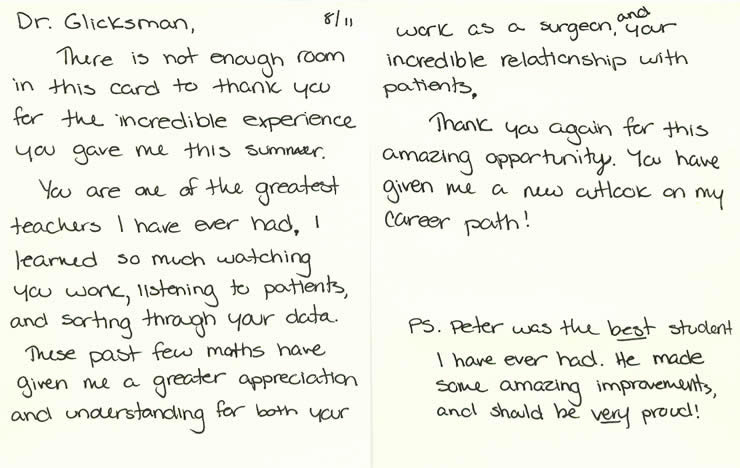 Dr. Glicksman, 8/11
There is not enough room
in this card to thank you
for the incredible experience
you gave me this summer.
You are one of the greatest
teachers I have ever had, I
learned so much watching
you work, listening to patients,
and sorting through your data.
These past few moths have
given me a greater appreciation
and understanding for both your
work as a surgeon, and your
incredible relationship with
patients.
Thank you again for this
amazing opportunity. You have
given me a new outlook on my
career path!
PS. Peter was the best student
I have ever had. He made
some amazing improvements,
and should be very proud!